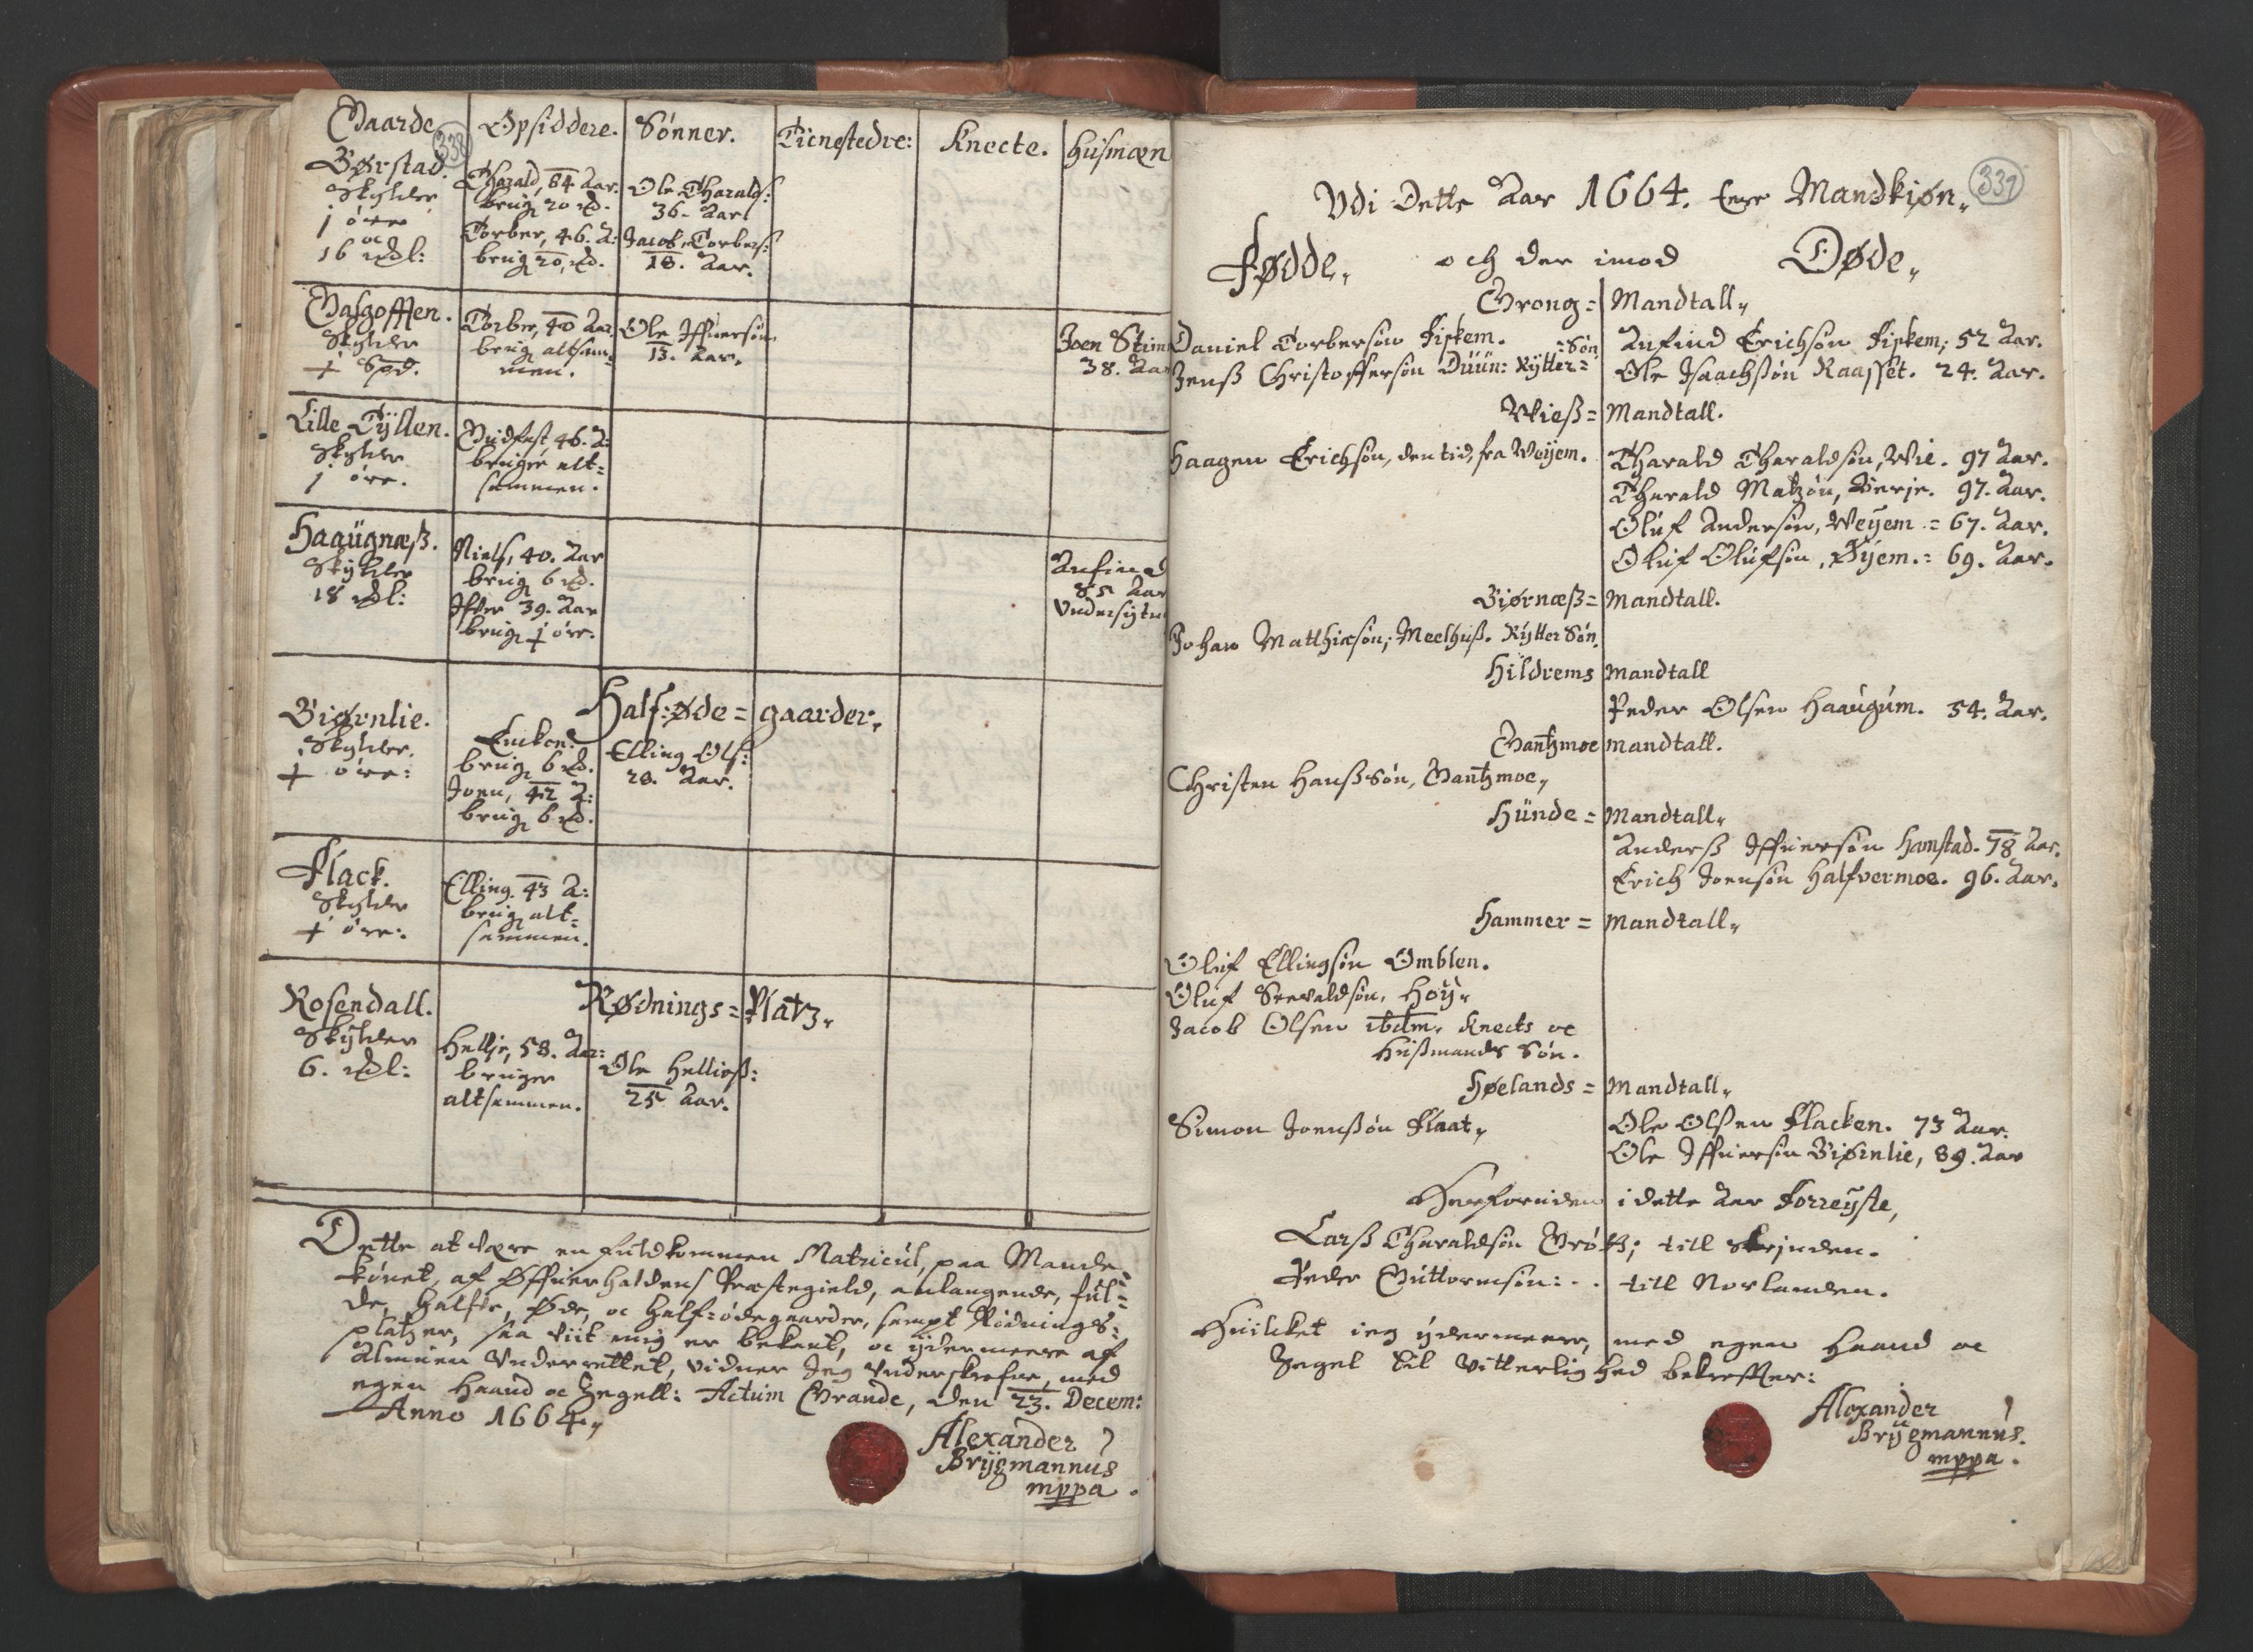 338
Gaarde Opsiddere. Sønner. Tienstedre: Knecte. Husmæn
Børstad.
Skylder
1 øre
oc
16 mdl:
Tharald, 84 Aar.
brug 20 md.
Torber, 46. A:
brug 20, md.
Ole Tharalds:
36. Aar
Jacob Torbers:
18. Aar.
Galgofften.
Skylder
Spd.
Torber, 40 Aar
brug altsam-
men.
Ole Iffuersøn
13. Aar.
Joen
38. Aar
Lille Tÿllen.
Skylder
1 øre.
Gudfast 46. A:
bruger alt-
sammen.
Haaügnæß.
Skylder
18 mdl:
Niels, 40. Aar
brug 6 md.
Iffver 39. Aar
brug øre.
Anfind
85 Aar
Half-øde = gaarder.
Biørnlie.
Skylder.
øre:
Encken
brug 6 md.
Joen, 42 A:
brug 6 md.
Elling Ols:
28. Aar.
Flack.
Skylder
øre:
Elling. 43 A:
brug alt-
sammen.
Rødnings = Platz.
Rosendall.
Skylder
6. mdl:
Hellje, 58. Aar:
bruger
altsammen.
Ole Helließ:
25 Aar.
Dette at være en fuldkommen Matricul, paa Mande-
kønet, af Øffuerhaldens Præstegield, anlangende, ful-
de, halfve, Øde, oc half-ødegaarder, sampt Rødnings-
platzer, saa viit mig er bekant, oc ÿdermeere af
Almuen Underrettet, vidner Jeg Underskrefne, med
egen Haand oc Zegell: Actum Grande, den 23. Decem:
Anno 1664.
Alexander
Brÿgmannus
mppa.
339
Udi Dette Aar 1664. Ere Mandkiøn.
Fødde, och der imod Døde,
Grong = Mandtall.
Daniel Torbersøn Fiskem.
Jenß Christoffersøn Düün: Rytter = Søn
Anfind Erichsøn Fiskem; 52 Aar.
Ole Isaachsøn Raasset. 24. Aar.
Wieß = Mandtall.
Haagen Erichsøn, den tid, fra Weÿem.
Tharald Tharaldsøn, Wie. 97 Aar.
Tharald Matzøn, Berje. 97. Aar.
Oluf Andersøn, Weÿem = 67. Aar.
Oluf Olufsøn, Øÿem. = 69. Aar.
Biørnæß = Mandtall.
Johan Matthiæsøn; Meelhuß. Rytter Søn.
Hildrems Mandtall
Peder Olsen Haaugum. 54. Aar.
Gantzmoe mandtall.
Christen Hanßsøn, Gantzmoe,
Hünde = Mandtall.
Anderß Iffuersøn Hamstad. 78 Aar.
Erich Joensøn Halfvermoe. 96. Aar.
Hammer = Mandtall.
Oluf Ellingsøn Omblen.
Oluf Seevaldsøn, Hoÿ,
Jacob Olsen ibdm. Knects oc
Hußmands Søn.
Høelands = Mandtall.
Simon Joenßøn Flaat.
Ole Olsen Flacken. 73 Aar.
Ole Iffuersøn Biørnlie, 89. Aar
Herforuden i dette Aar Forreÿste,
Larß Tharaldsøn
Peder Guttormsøn: .. till Norlanden.
Huilcket ieg ÿdermeere, med egen Haand oc
Zegel til Vitterlighed bekreffter:
Alexander
Brÿgmannus.
mppa.